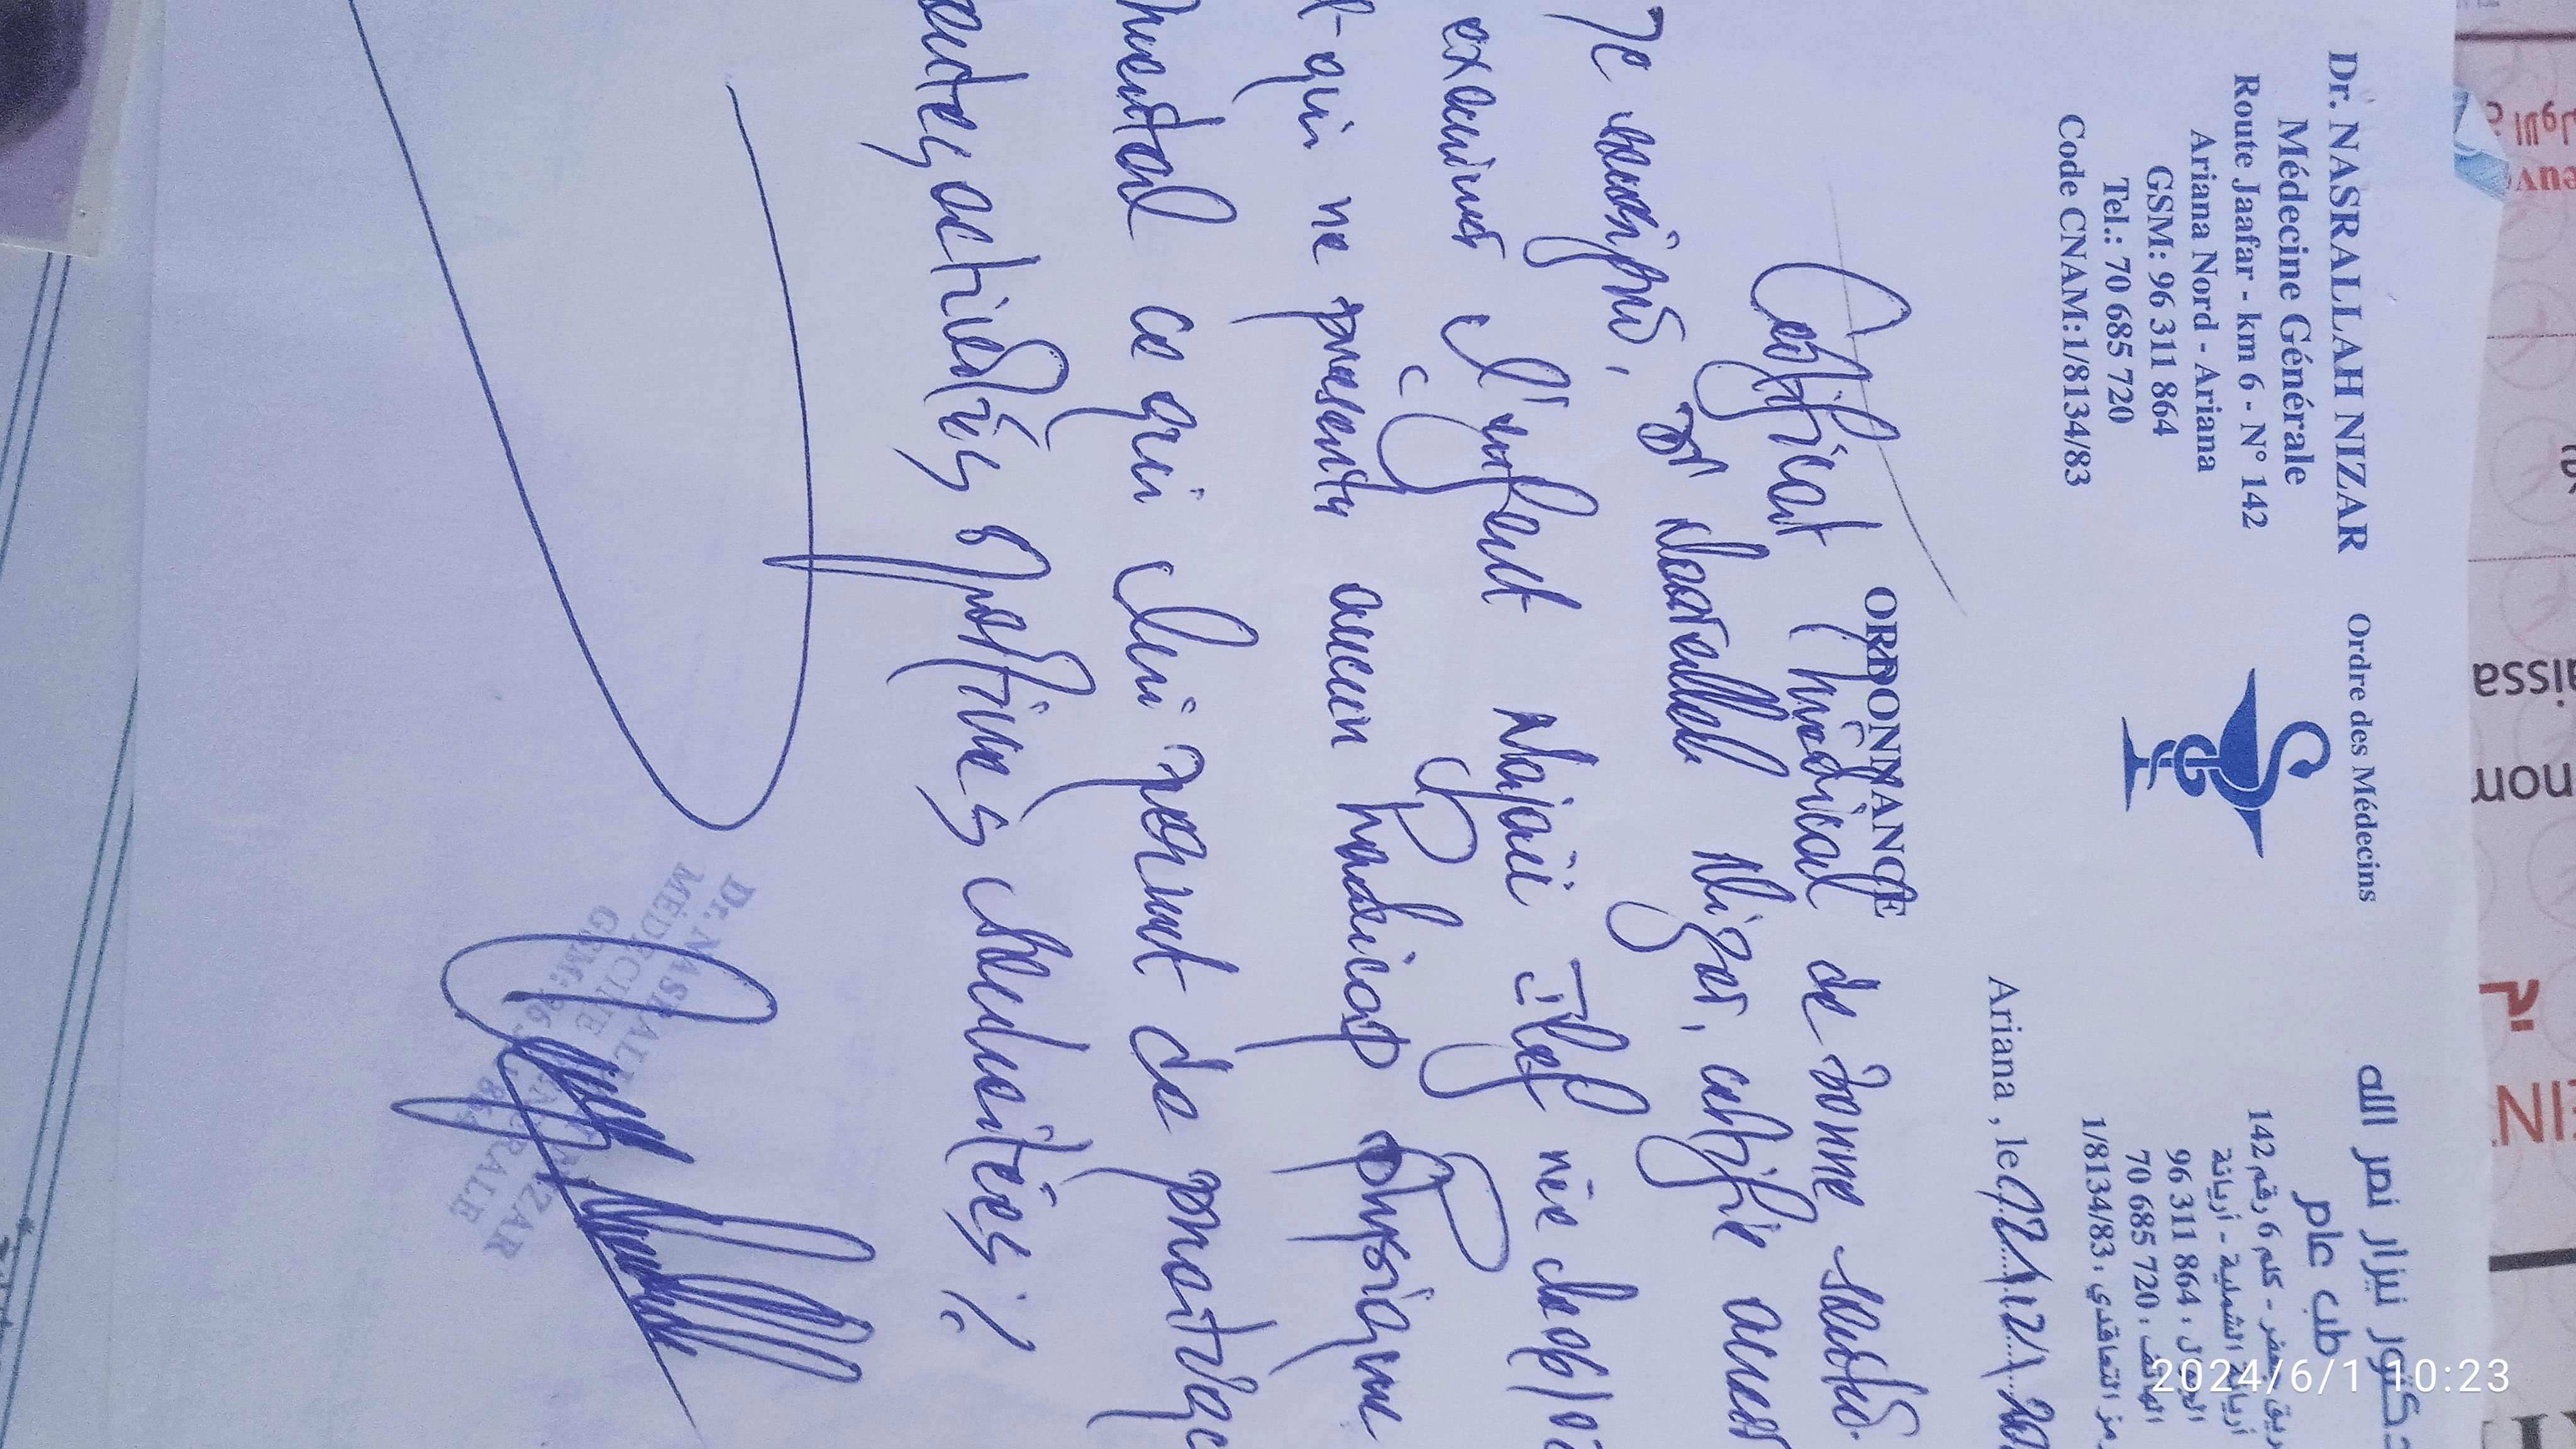 Dr. NASRALLAH NIZAR
Médecine Générale
Route Jaafar - km 6 - N° 142
Ariana Nord - Ariana
GSM: 96 311 864
Tel.: 70 685 720
Code CNAM:1/8134/83
Ordre des Médecins
كتور نيزار نصر الله
طب عام
كلم 6 رقم 142
أريانة الشمالية - أريانة
الجوال : 96 311 864
الهاتف : 70 685 720
رمز التعاقدي : 1/8134/83
Ariana , le 02/12/20
ORDONNANCE
Certificat médical de bonne santé.
Je soussigné, Dr Nasrallah Nizar, certifie avoir
examiner l'enfant Najaii née
t-qui ne présente aucun handicap physique
mental ce qui lui permet de pratique
toutes activités sportives
Dr. NASRALLAH NIZAR
MÉDECINE GÉNÉRALE
GSM: 96 311 864
euve
aissa
nom
2024/6/1 10:23